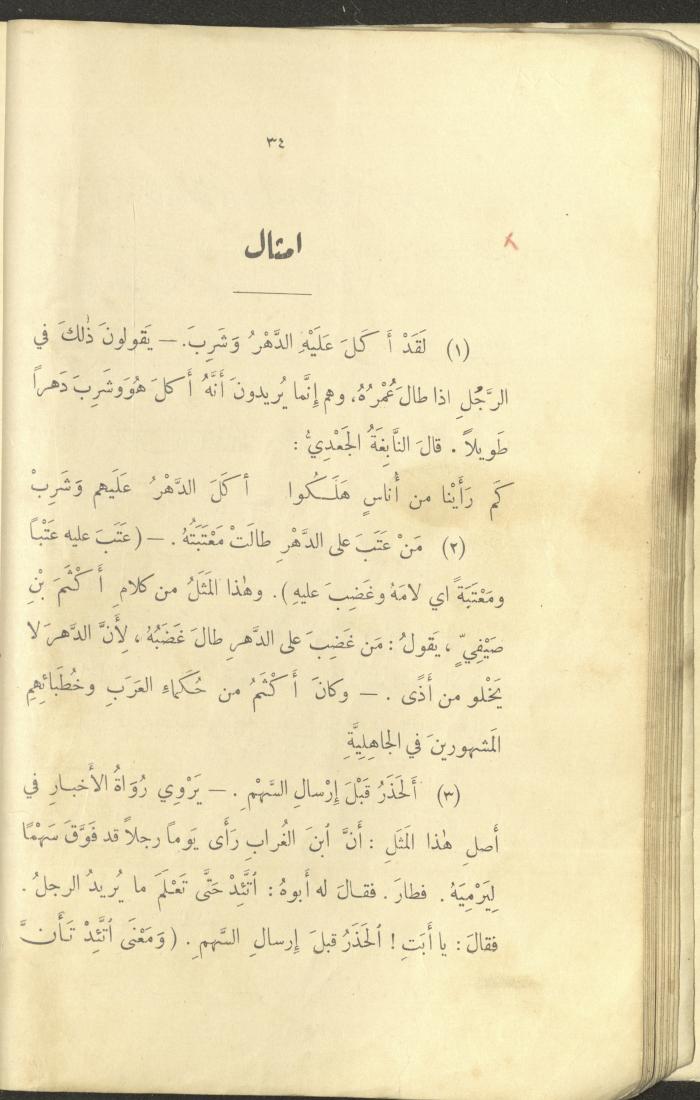 ٣٤
امثال
(١) لَقَدْ أَكَلَ عَلَيْهِ الدَّهْرُ وَشَرِبَ. — يَقولونَ ذٰلكَ في
الرَّجُلِ اذا طالَ عُمْرُهُ، وهم إِنَّما يُريدونَ أَنَّهُ أَكلَ هُوَ وَشَرِبَ دَهراً
طَويلاً . قالَ النَّابِغَةُ الجَعْدِيُّ :
كَم رَأَيْنا من أُناسٍ هَلَكُوا أَكَلَ الدَّهْرُ عَلَيهم وَشَرِبْ
(٢) مَنْ عَتَبَ على الدَّهْرِ طالَتْ مَعْتَبَتُهُ . — (عَتَبَ عليه عَتْباً
ومَعْتَبَةً اي لامَهُ وغَضِبَ عليهِ). وهٰذا المَثَلُ من كلامِ أَكْثَمَ بْنِ
صَيْفِيّ ، يَقولُ : مَن غَضِبَ على الدَّهرِ طالَ غَضَبُهُ ، لِأَنَّ الدَّهرَ لا
يَخْلو من أَذًى . — وكانَ أَكْثَمُ من حُكَماءِ العَرَبِ وخُطَبائهِمِ
المَشهورينَ في الجاهِلِيَّةِ
(٣) أَلحَذَرُ قَبْلَ إِرْسالِ السَّهْمِ . — يَرْوِي رُوَاةُ الأَخبارِ في
أَصلِ هٰذا المَثَلِ : أَنَّ ٱبنَ الغُرابِ رَأَى يَوماً رجلاً قد فَوَّقَ سَهْمًا
لِيَرْمِيَهُ . فطارَ . فقالَ له أَبوهُ : ٱتَّئِدْ حَتَّى تَعْلَمَ ما يُريدُ الرجلُ .
فقالَ : يا أَبَتِ ! ٱلحَذَرُ قبلَ إِرسالِ السَّهمِ . (وَمَعْنَى ٱتَّئِدْ تَأَنَّ